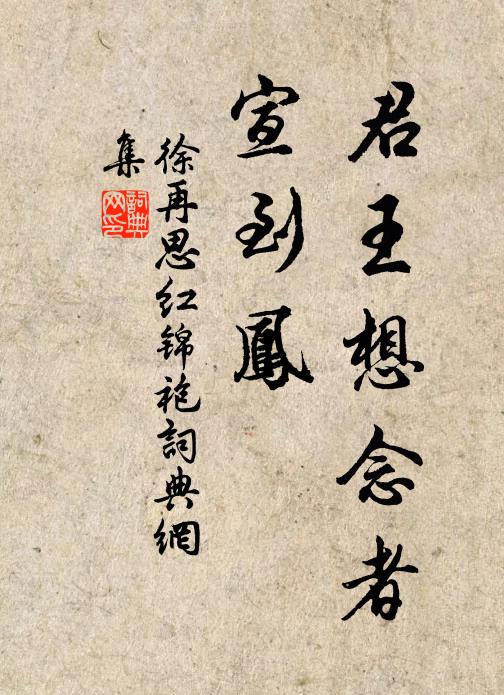 君王想念者
宣到鳳
徐再思红锦袍詞典網
集
詞典
网印